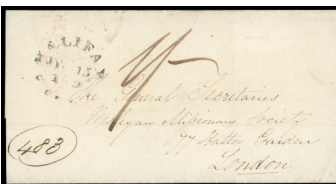 HALIFAX
The General Secretaries
Wesleyan Missionary Society
77 Hatton Garden
London
483